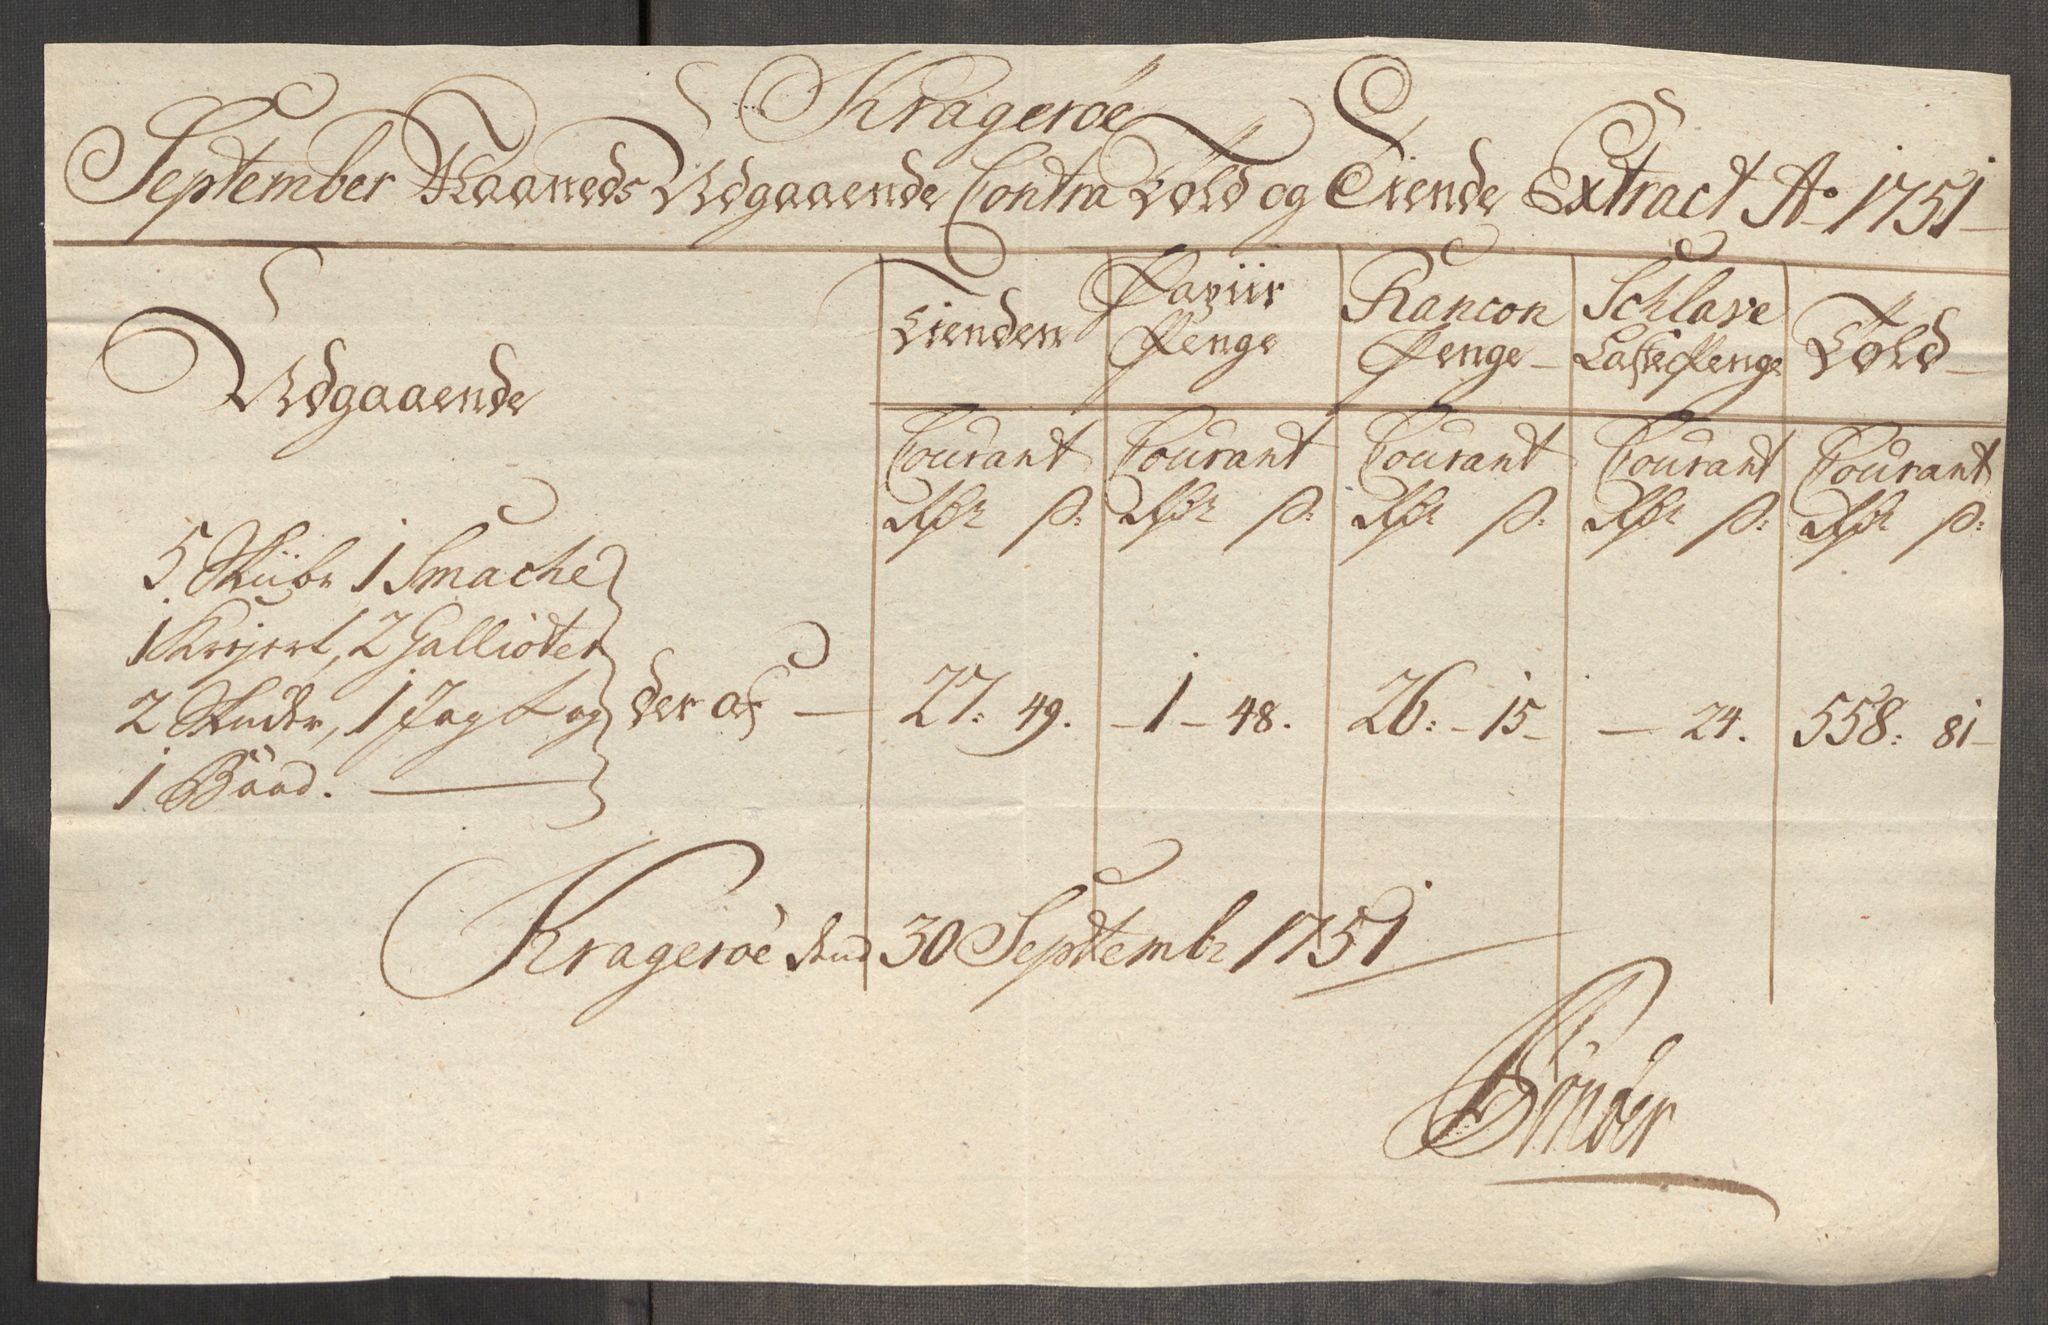 Kragerøe
September Maaneds Udgaaende Contra Told og Tiende Extract Ao 1751
Udgaaende
Tienden
Papiir Penge
Rancon Penge
Schlave Casse Penge
Told
Courant Courant Courant Courant Courant
Rdr ß: Rdr ß: Rdr ß: Rdr ß: Rdr ß:
5 Skibe 1 Smache
1 Krejert, 2 Gallioter
2 Skuder, 1 Jagt og der af — 27: 49. — 1 — 48. 26: — 15 — — 24. 558: 81 —
1 Baad.
Kragerøe den 30 Septembr 1751